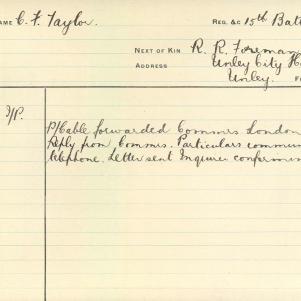 NAME C. F. Taylor. REG. &C 15th Batt
NEXT OF KIN R. R. Foreman
ADDRESS Unley City H
Unley. F
P/Cable forwarded Commrs London
Reply from Commrs. Particulars commun
telephone. Letter sent Enquirer confirmin